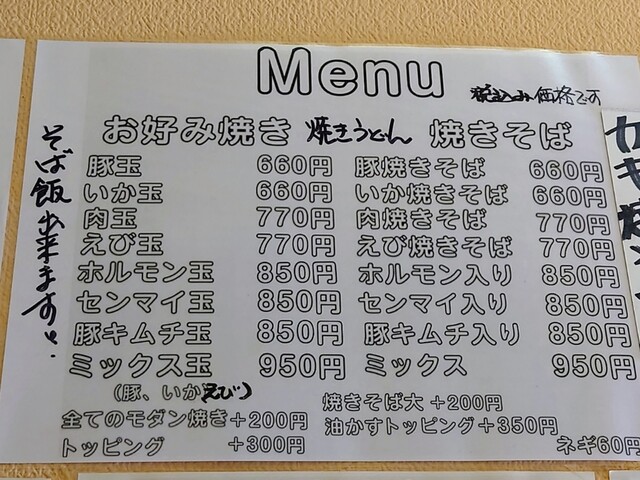 Menu
税込み価格です
お好み焼き 焼きうどん 焼きそば
豚玉 660円 豚焼きそば 660円
いか玉 660円 いか焼きそば 660円
肉玉 770円 肉焼きそば 770円
えび玉 770円 えび焼きそば 770円
ホルモン玉 850円 ホルモン入り 850円
センマイ玉 850円 センマイ入り 850円
豚キムチ玉 850円 豚キムチ入り 850円
ミックス玉 950円 ミックス 950円
(豚、いか えび)
焼きそば大 +200円
全てのモダン焼き+200円 油かすトッピング+350円
トッピング +300円 ネギ60円
そば飯出来ます
カキ